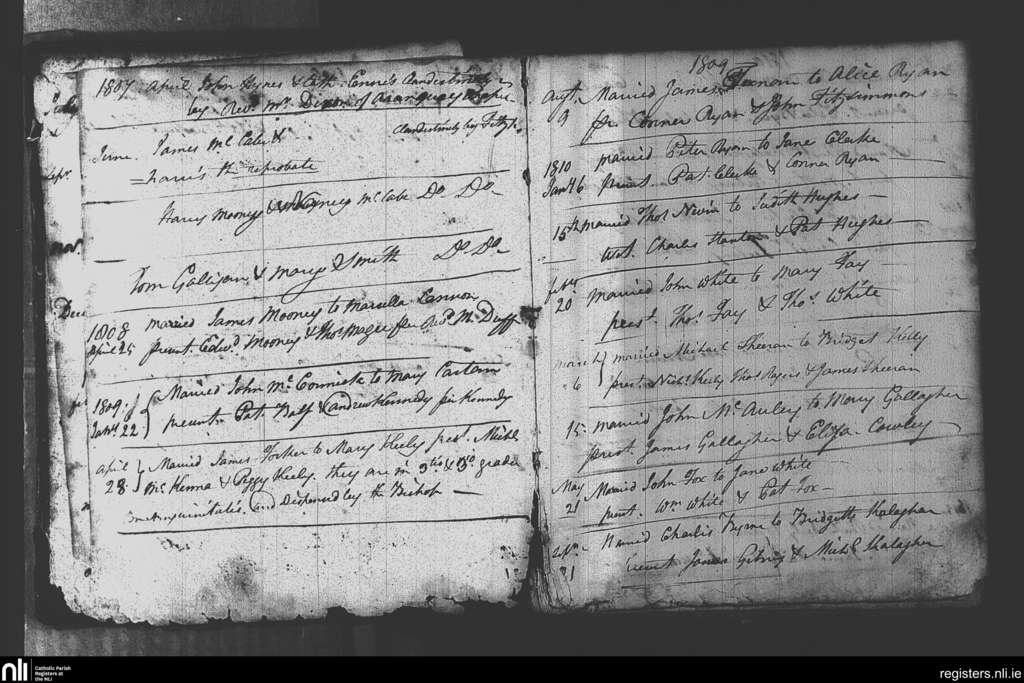 1807 April John Hynes & Cath. Clandestinely
by Revd. Mr. Dixon of Aranquay
Clandestinely by
June. James Mc Cabe &
the reprobate
Harry Mooney & Nancy Mc Cabe Do. Do.
Tom Galligan & Mary Smith Do. Do.
1808 Married James Mooney to Marcella Lennon
April 25 present. Edwd. Mooney & Thos. Magee per Revd. Mr. Duff
1809. Married John Mc Cormick to Mary
Jany. 22 present. Pat. Half & Andrew Kennedy per Kennedy
April Married James to Mary Keely prest. Michl.
28 Mc Kenna & Peggy Keely. they are in 3tio & 3o. gradu
and Dispensed by the Bishop
1809
Augt. Married James to Alice Ryan
9 pr. Connor Ryan & John Fitzsimmons
1810 married Peter Ryan to Jane Clarke
Jany. 6 prest. Pat. Clarke & Connor Ryan
15th married Thos. Nevin to Judith Hughes
wit. Charles & Pat Hughes
married John White to Mary Fay
20 prest. Thos. Fay & Thos. White
March married Michael Sheeran to Bridget Keely
6 prest. Nichs. Keely Thos. Rogers & James Sheeran
15. married John Mc Auley to Mary Gallagher
prest. James Gallagher & Eliza. Cowley
May Married John Fox to Jane White
21 prest. Wm. White & Pat Fox
Sepr. Married Charles Byrne to Bridget
21 present James & Michl.
nli
Catholic Parish
Registers at
the NLI
registers.nli.ie